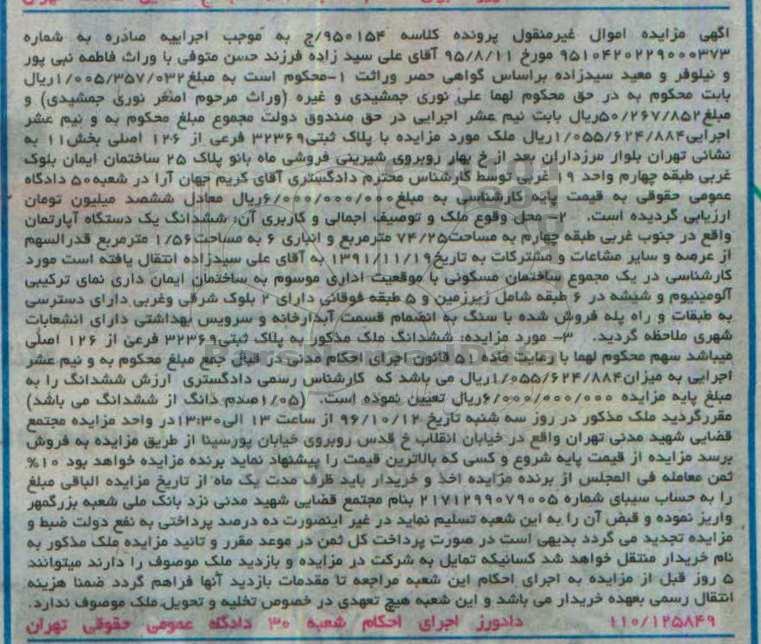 آگهی مزایده اموال غیرمنقول پرونده کلاسه ۹۵۰۱۵۴/ج به موجب اجراییه صادره به شماره
۹۵۱۰۴۲۰۲۲۹۰۰۰۳۷۳ مورخ ۹۵/۸/۱۱ آقای علی سید زاده فرزند حسن متوفی با وراث فاطمه نبی پور
و نیلوفر و معید سیدزاده براساس گواهی حصر وراثت ۱-محکوم است به مبلغ۱/۰۰۵/۳۵۷/۰۳۲ریال
بابت محکوم به در حق محکوم لهما علی نوری جمشیدی و غیره (وراث مرحوم اصغر نوری جمشیدی) و
مبلغ۵۰/۲۶۷/۸۵۲ریال بابت نیم عشر اجرایی در حق صندوق دولت مجموع مبلغ محکوم به و نیم عشر
اجرایی۱/۰۵۵/۶۲۴/۸۸۴ریال ملک مورد مزایده با پلاک ثبتی۳۲۳۶۹ فرعی از ۱۲۶ اصلی بخش۱۱ به
نشانی تهران بلوار مرزداران بعد از خ بهار روبروی شیرینی فروشی ماه بانو پلاک ۲۵ ساختمان ایمان بلوک
غربی طبقه چهارم واحد ۱۹ غربی توسط کارشناس محترم دادگستری آقای کریم جهان آرا در شعبه۵۰ دادگاه
عمومی حقوقی به قیمت پایه کارشناسی به مبلغ۶/۰۰۰/۰۰۰/۰۰۰ریال معادل ششصد میلیون تومان
ارزیابی گردیده است. ۲- محل وقوع ملک و توصیف اجمالی و کاربری آن: ششدانگ یک دستگاه آپارتمان
واقع در جنوب غربی طبقه چهارم به مساحت۷۴/۲۵ مترمربع و انباری ۶ به مساحت۱/۵۶ مترمربع قدرالسهم
از عرصه و سایر مشاعات و مشترکات به تاریخ۱۳۹۱/۱۱/۱۹ به آقای علی سیدزاده انتقال یافته است مورد
کارشناسی در یک مجموع ساختمان مسکونی با موقعیت اداری موسوم به ساختمان ایمان داری نمای ترکیبی
آلومینیوم و شیشه در ۶ طبقه شامل زیرزمین و ۵ طبقه فوقانی دارای ۲ بلوک شرقی وغربی دارای دسترسی
به طبقات و راه پله فروش شده با سنگ به انضمام قسمت آبدارخانه و سرویس بهداشتی دارای انشعابات
شهری ملاحظه گردید. ۳- مورد مزایده: ششدانگ ملک مذکور به پلاک ثبتی۳۲۳۶۹ فرعی از ۱۲۶ اصلی
میباشد سهم محکوم لهما با رعایت ماده ۵۱ قانون اجرای احکام مدنی در قبال جمع مبلغ محکوم به و نیم عشر
اجرایی به میزان۱/۰۵۵/۶۲۴/۸۸۴ریال می باشد که کارشناس رسمی دادگستری ارزش ششدانگ را به
مبلغ پایه مزایده ۶/۰۰۰/۰۰۰/۰۰۰ریال تعیین نموده است. (۱/۰۵صدم دانگ از ششدانگ می باشد)
مقررگردید ملک مذکور در روز سه شنبه تاریخ ۹۶/۱۰/۱۲ از ساعت ۱۳ الی۱۳:۳۰در واحد مزایده مجتمع
قضایی شهید مدنی تهران واقع در خیابان انقلاب خ قدس روبروی خیابان پورسینا از طریق مزایده به فروش
برسد مزایده از قیمت پایه شروع و کسی که بالاترین قیمت را پیشنهاد نماید برنده مزایده خواهد بود ۱۰%
ثمن معامله فی المجلس از برنده مزایده اخذ و خریدار باید ظرف مدت یک ماه از تاریخ مزایده الباقی مبلغ
را به حساب سیبای شماره ۲۱۷۱۲۹۹۰۷۹۰۰۵ بنام مجتمع قضایی شهید مدنی نزد بانک ملی شعبه بزرگمهر
واریز نموده و قبض آن را به این شعبه تسلیم نماید در غیر اینصورت ده درصد پرداختی به نفع دولت ضبط و
مزایده تجدید می گردد بدیهی است در صورت پرداخت کل ثمن در موعد مقرر و تائید مزایده ملک مذکور به
نام خریدار منتقل خواهد شد کسانیکه تمایل به شرکت در مزایده و بازدید ملک موصوف را دارند میتوانند
۵ روز قبل از مزایده به اجرای احکام این شعبه مراجعه تا مقدمات بازدید آنها فراهم گردد ضمنا هزینه
انتقال رسمی بعهده خریدار می باشد و این شعبه هیچ تعهدی در خصوص تخلیه و تحویل ملک موصوف ندارد.
۱۱۰/۱۲۵۸۴۹ دادورز اجرای احکام شعبه ۳۰ دادگاه عمومی حقوقی تهران